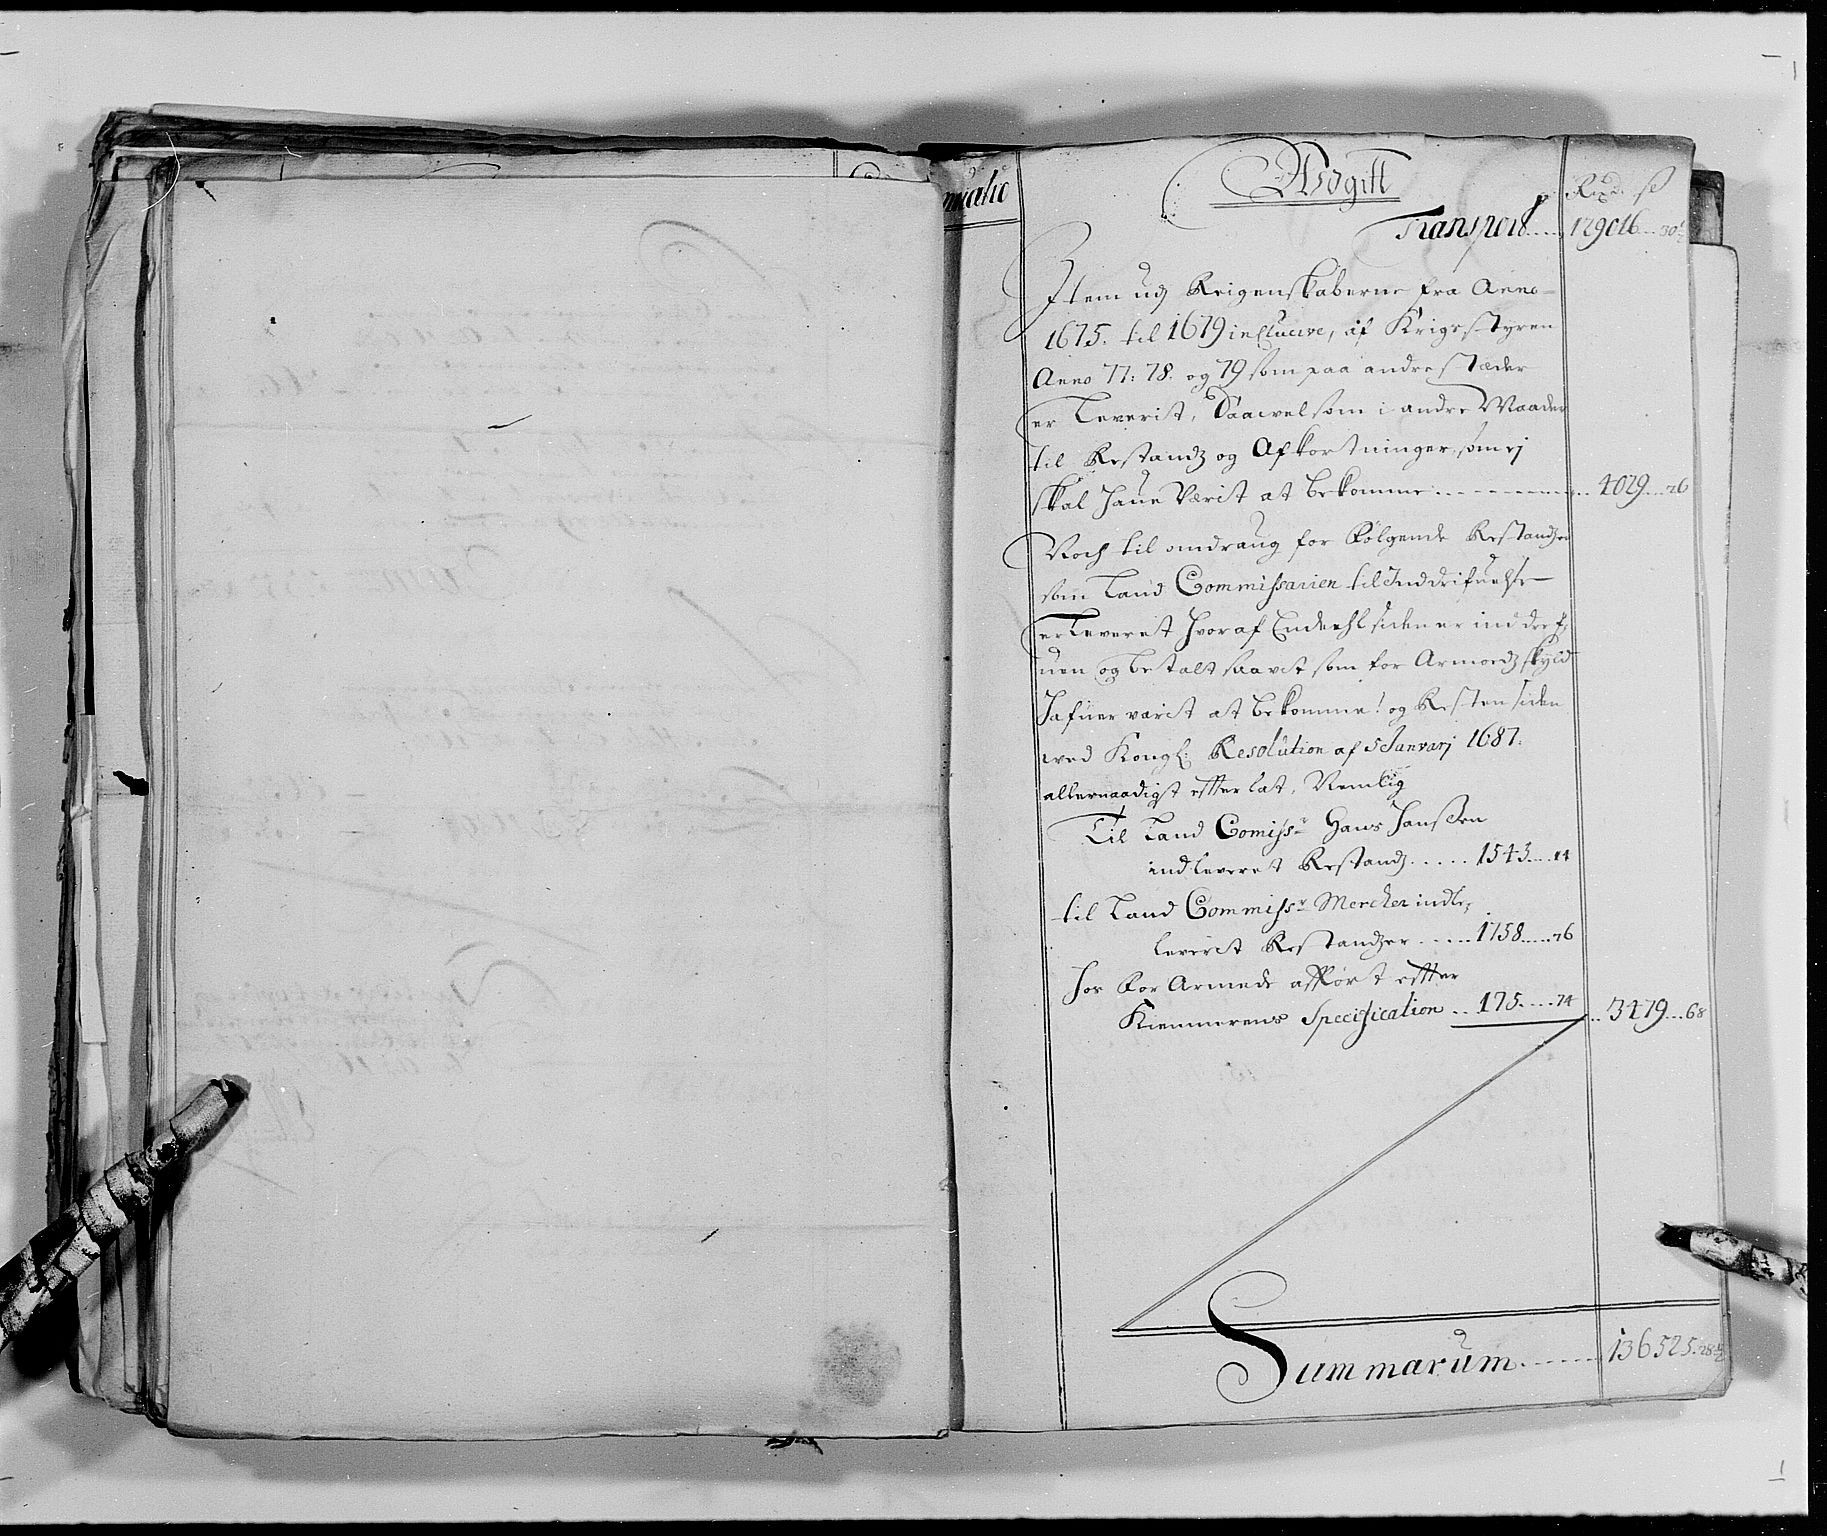 Udgift
Rixd. ß
Transport..... 129016...30½
Item udj Reigenskaberne fra Anno
1675. til 1679 inclucive, af Krigsstyren
Anno 77: 78. og 79 som paa andre stæder
er Leverit, Saavel som i andre Maader
til Restandz og Afkortninger, som ej
skal haue Værit at bekomme........... 4029...26
Noch til omdraug for Følgende Restandzer
som Land Commissarien til Inddrifuelse
er Leveret hvoraf Endeehl siden er inddref,
uen og betalt saavit som for Armoedz skyld
hafuer varit at bekomme! og Resten siden
wed Kongl: Resolution af 5 Januarj 1687:
allernaadigst efterlat, Nemlig
Til Land Comissr Hans Hanssen
indleveret Restandz..... 1543....14
til Land Commissr Mercker indle,
leverit Restandzer..... 1758.....76
for For Armede afført effter
Kiemnerens Specification.. 175.....74 .. 3479...68
Summarum....... 136525.28½